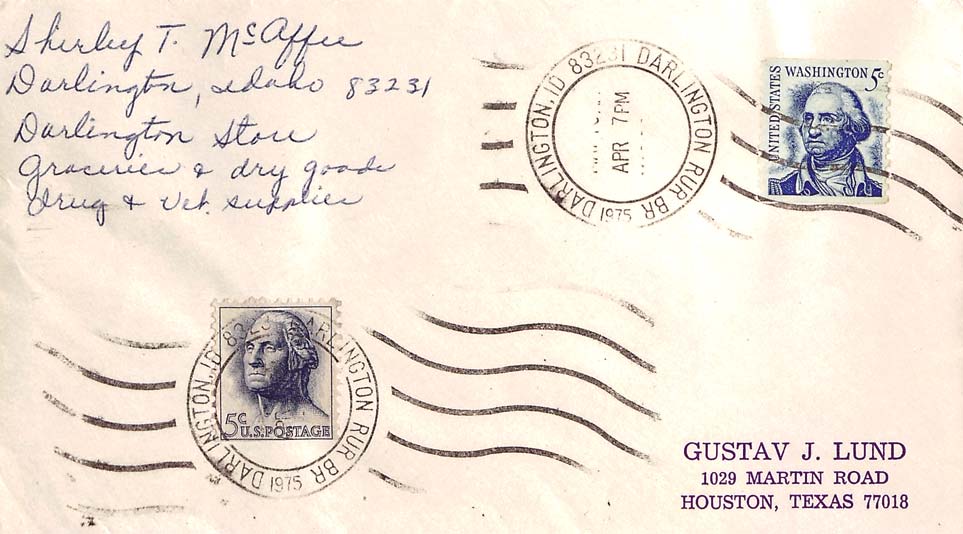 Shirley T. McAffee
Darlington, Idaho 83231
Darlington Store
Groceries & dry goods
Drug & Vet. supplies
DARLINGTON, ID 83231 DARLINGTON RUR BR
APR 7PM
1975
UNITED STATES
WASHINGTON 5c
DARLINGTON, ID 8323 DARLINGTON RUR BR
1975
5c
U.S. POSTAGE
GUSTAV J. LUND
1029 MARTIN ROAD
HOUSTON, TEXAS 77018